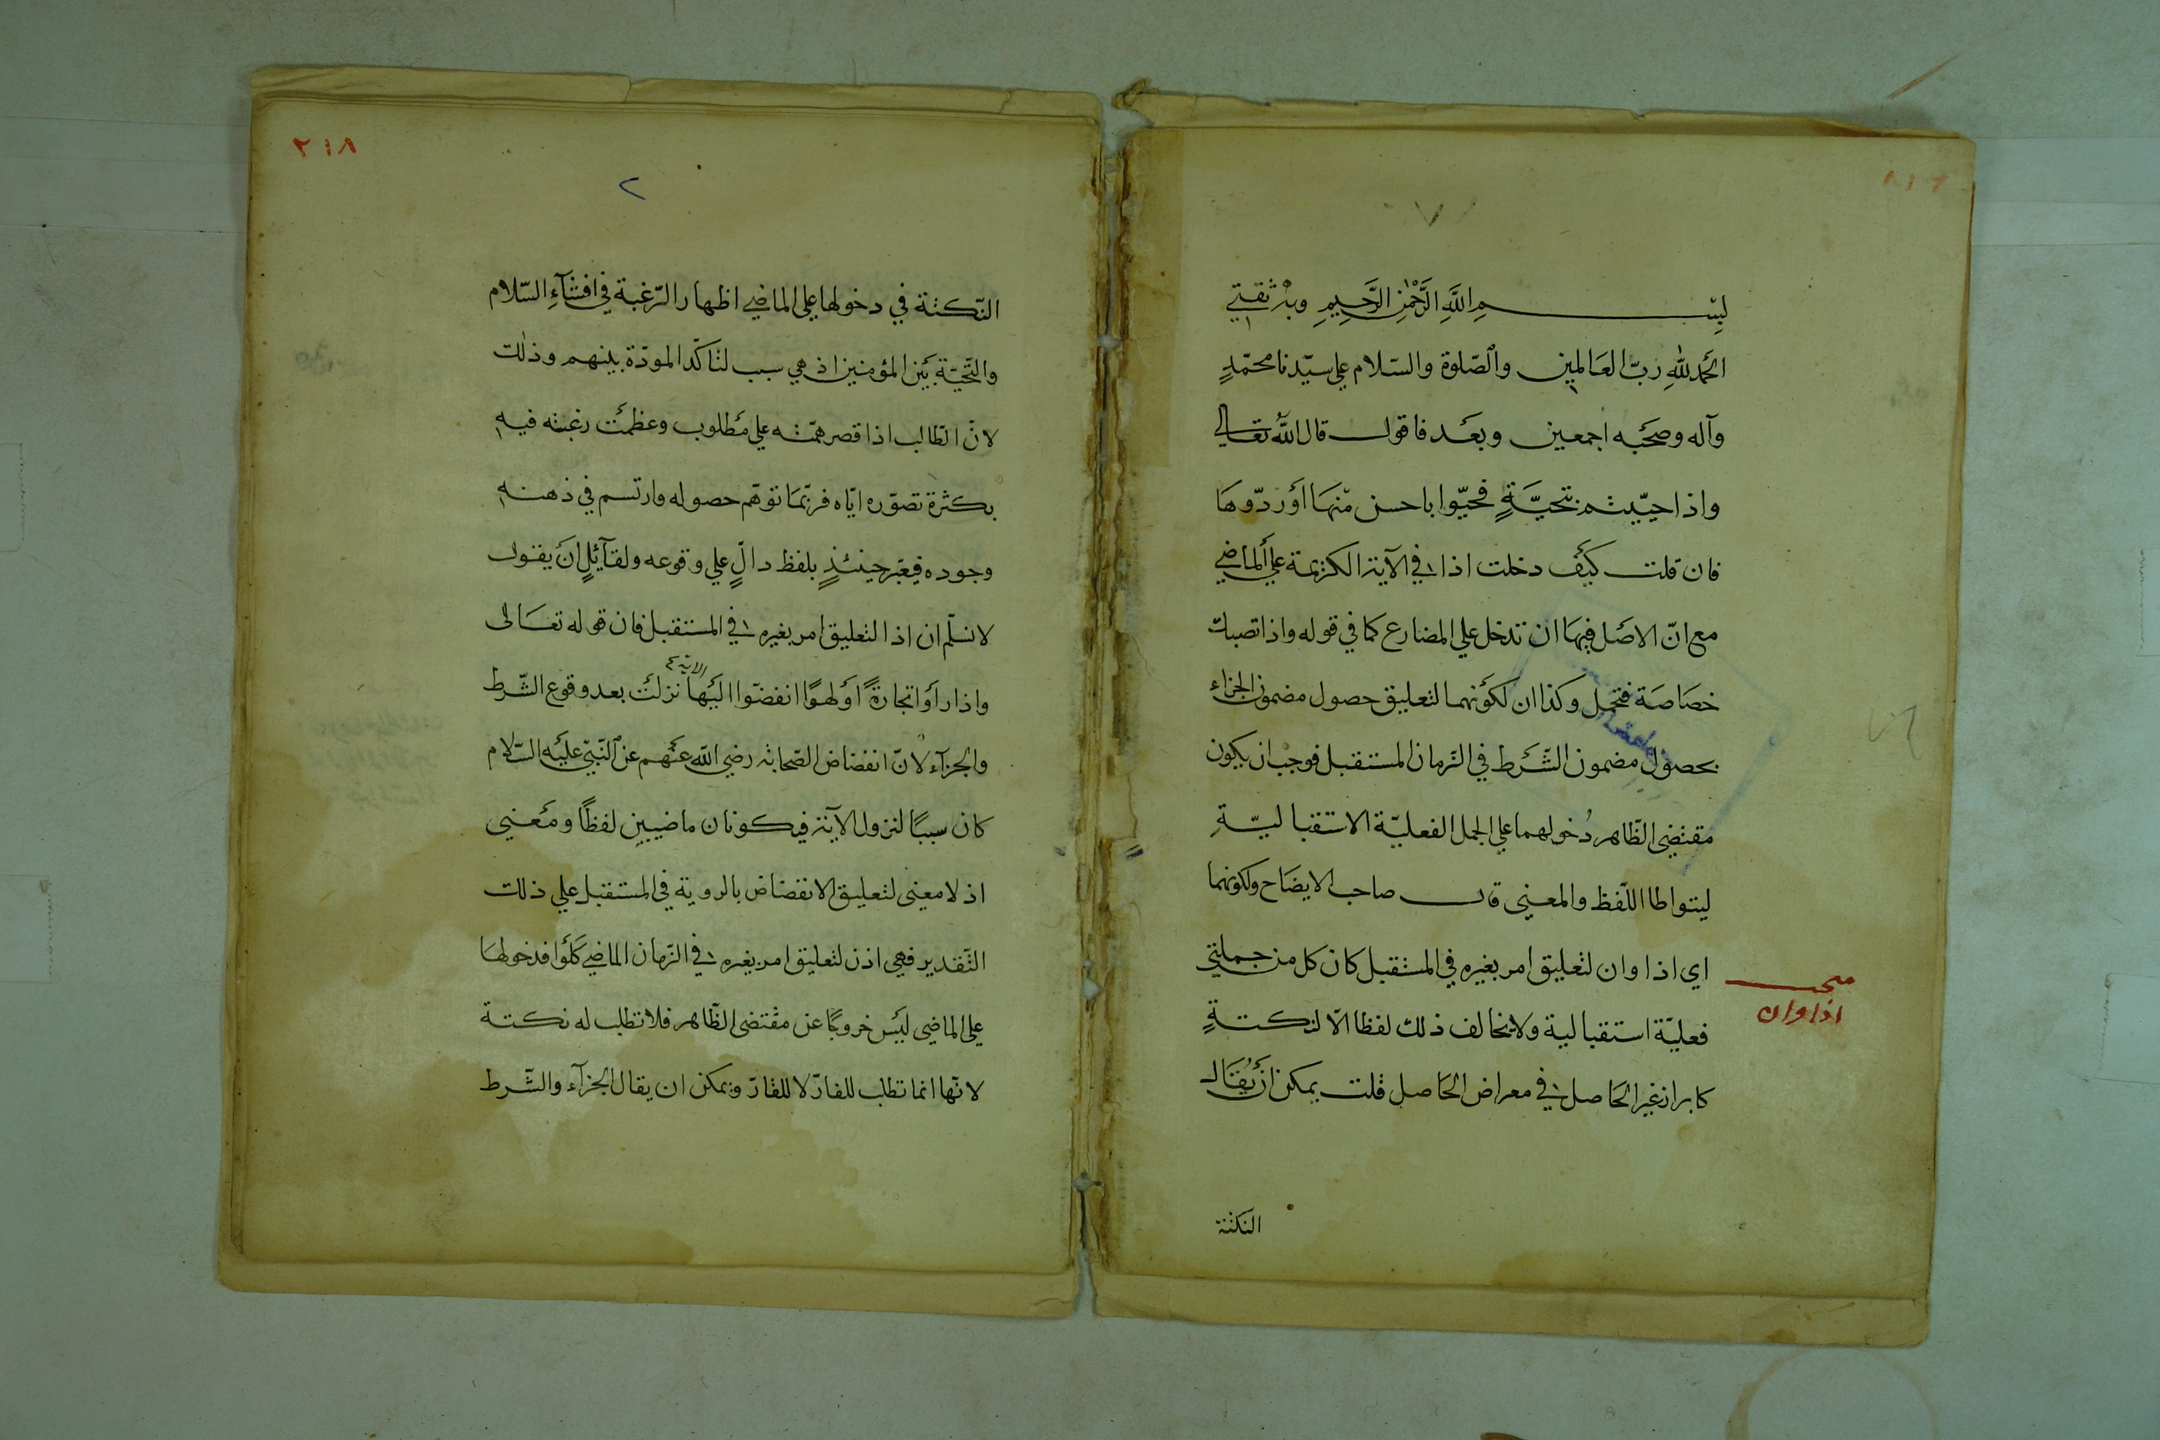 بسم الله الرحمن الرحيم وبه ثقتي
الحمد لله ربّ العالمين والصّلوة والسّلام علي سيّدنا محمّدٍ
وآله وصحبه اجمعين وبعد فاقول قال الله تعالي
واذا حيّيتم بتحيّةٍ فحيّوا باحسن منها اَو ردّوها
فان قلت كيف دخلت اذا في الآية الكريمة علي الماضي
مع انّ الاصل فيها ان تدخل علي المضارع كما في قوله واذا تصبك
خصاصة فتحمل وكذا ان لكونهما لتعليق حصول مضمون الجزاء
بحصول مضمون الشّرط في الزمان المستقبل فوجب ان يكون
مقتضي الظّاهر دُخولهما علي الجمل الفعليّة الاستقباليّةِ
ليتواطا اللّفظ والمعني قال صاحب الايضاح ولكونهما
اي اذا وان لتعليق امر بغيره في المستقبل كان كل من جملتي
فعليّة استقبالية ولا يخالف ذلك لفظا الّا لنكتةٍ
كابراز غير الحاصل في معراض الحاصل قلت يمكن اَن يُقال
النكتة
مبحث
اذا وان
٢١٨
٢
النّكتة في دخولها علي الماضي اظهار الرّغبة في افشآءِ السّلام
والتّحيّة بَين المؤمنين اذ هي سبب لتاكّد المودّة بينهم وذلك
لانّ الطّالب اذا قصر همّته علي مطلوب وعظمت رغبته فيه
بكثرة تصوّره ايّاه فربّما توهّم حصوله وارتسم في ذهنه
وجوده فيعبّر حينئذٍ بلفظ دالٍّ علي وقوعه ولقآئلٍ اَن يقول
لا نسلّم ان اذا لتعليق امر بغيره في المستقبل فان قوله تعالى
واذا راَوا تجارةً اَو لهوًا انفضّوا اليَها الاية نزلت بعد وقوع الشّرط
والجزآء لانّ انفضاض الصّحابة رضي الله عنهم عن النّبيّ عليه السّلام
كان سببًا لنزول الآية فيكونان ماضيين لفظًا ومَعني
اذ لا معني لتعليق الانفضاض بالروية في المستقبل علي ذلك
التّقدير فهي اذن لتعليق امر بغيره في الزّمان الماضي كلَو فدخولها
علي الماضي ليس خروجًا عن مقتضي الظّاهر فلا تطلب له نكتة
لانّها انما تطلب للفارّ لا للقارّ ويمكن ان يقال الجزآء والشّرط